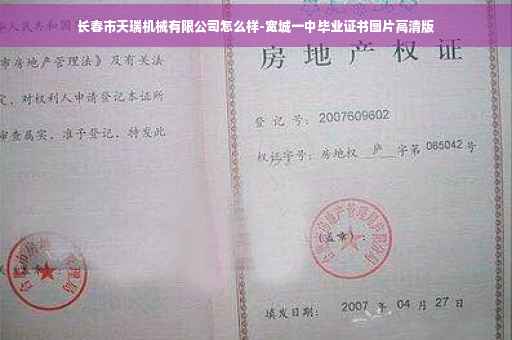 长春市天瑞机械有限公司怎么样-宽城一中毕业证书图片高清版
人民共和国
市房地产管理法》及有关法
定，对权利人申请登记本证所
审查属实，准予登记，特发此
房地产权证
登记号：2007609602
权证字号：房地权 庐 字第 065042 号
(盖章)：
填发日期：2007 年 04 月 27 日